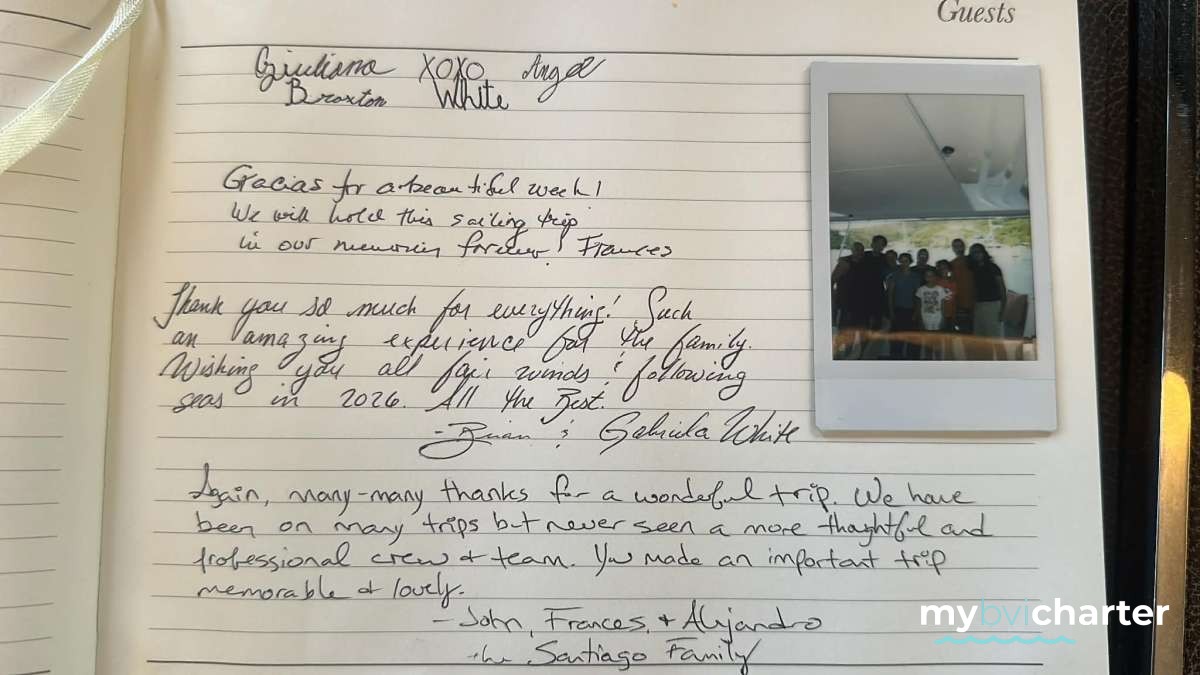 Guests
Giuliana XOXO Angel
Braxton White
Gracias for a beautiful week!
We will hold this sailing trip
in our memories forever! Frances
Thank you so much for everything! Such
an amazing experience for the family.
Wishing you all fair winds & following
seas in 2026. All the Best.
- Brian & Gabriela White
Again, many-many thanks for a wonderful trip. We have
been on many trips but never seen a more thoughtful and
professional crew & team. You made an important trip
memorable & lovely.
- John, Frances, & Alejandro
the Santiago Family
mybvicharter